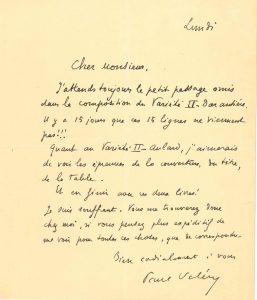 Lundi
Cher Monsieur,
J'attends toujours le petit passage omis
dans la composition du Variété II - Darantière.
Il y a 15 jours que ces 15 lignes ne viennent
pas!!!
Quant au Variété II - Aulard, j'aimerais
de voir les épreuves de la couverture, du titre,
de la table.
Il en finir avec ces deux livres!
Je suis souffrant. Vous me trouverez donc
chez moi, si vous pensez plus expéditif de
me voir pour toutes ces choses, que de correspondre.
Bien cordialement à vous
Paul Valéry